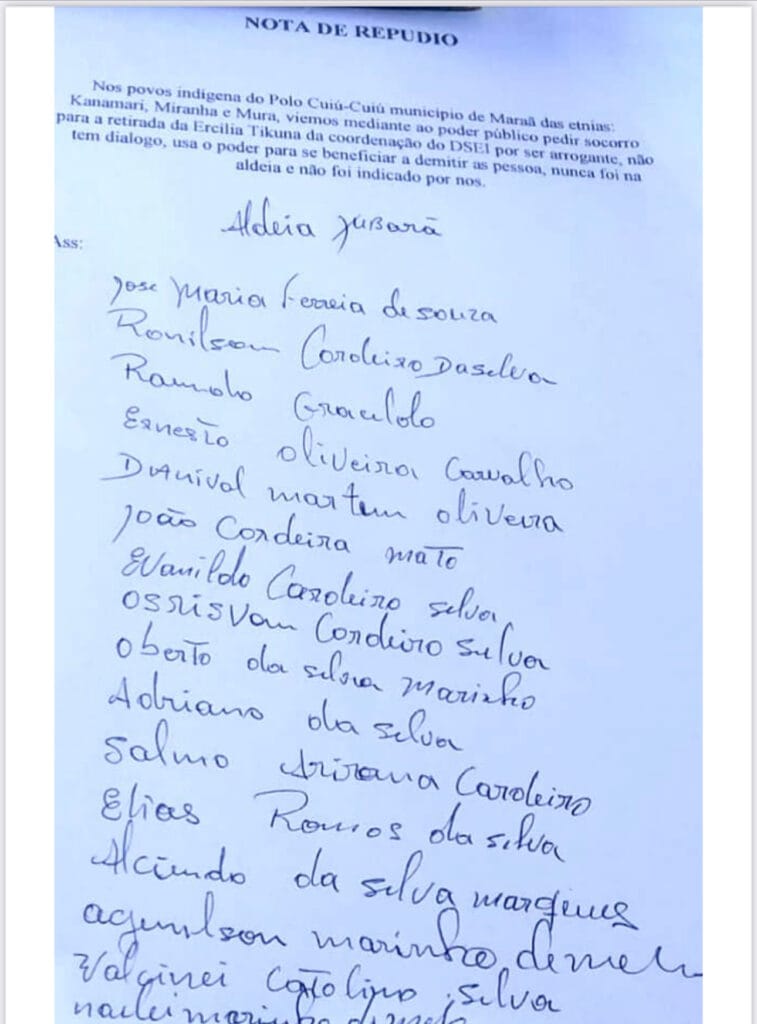 NOTA DE REPUDIO
Nos povos indígena do Polo Cuiú-Cuiú município de Maraã das etnias:
Kanamari, Miranha e Mura, viemos mediante ao poder público pedir socorro
para a retirada da Ercilia Tikuna da coordenação do DSEI por ser arrogante, não
tem dialogo, usa o poder para se beneficiar a demitir as pessoa, nunca foi na
aldeia e não foi indicado por nos.
Aldeia Jubarã
Ass:
Jose Maria Ferreia de souza
Ronilson Cordeiro Da selva
Ernesto oliveira Carvalho
martem oliveira
João Cordeira mato
Evanildo Cardeiro selva
Cordeiro Selva
oberto da selva Marinho
Adriano da selva
Salmo Cardeiro
Elias Ramos da silva
da silva
marinho de
silva
marinho